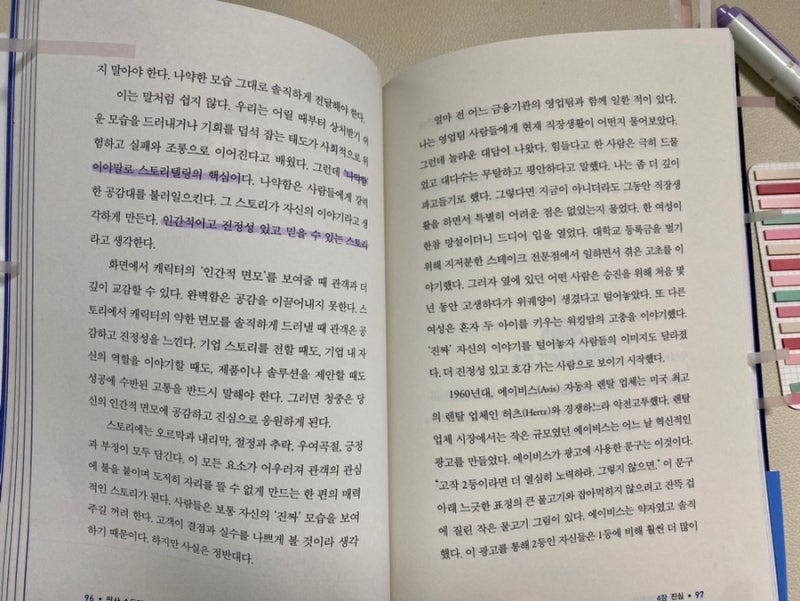 지 말아야 한다. 나약한 모습 그대로 솔직하게 전달해야 한다.
이는 말처럼 쉽지 않다. 우리는 어릴 때부터 상처받기 쉬
운 모습을 드러내거나 기회를 덥석 잡는 태도가 사회적으로 위
험하고 실패와 조롱으로 이어진다고 배웠다. 그런데 나약함
이야말로 스토리텔링의 핵심이다. 나약함은 사람들에게 강력
한 공감대를 불러일으킨다. 그 스토리가 자신의 이야기라고 생
각하게 만든다. 인간적이고 진정성 있고 믿을 수 있는 스토리
라고 생각한다.
화면에서 캐릭터의 ‘인간적 면모’를 보여줄 때 관객과 더
깊이 교감할 수 있다. 완벽함은 공감을 이끌어내지 못한다. 스
토리에서 캐릭터의 약한 면모를 솔직하게 드러낼 때 관객은 공
감하고 진정성을 느낀다. 기업 스토리를 전할 때도, 기업 내 자
신의 역할을 이야기할 때도, 제품이나 솔루션을 제안할 때도
성공에 수반된 고통을 반드시 말해야 한다. 그러면 청중은 당
신의 인간적 면모에 공감하고 진심으로 응원하게 된다.
스토리에는 오르막과 내리막, 절정과 추락, 우여곡절, 긍정
과 부정이 모두 담긴다. 이 모든 요소가 어우러져 관객의 관심
에 불을 붙이며 도저히 자리를 뜰 수 없게 만드는 한 편의 매력
적인 스토리가 된다. 사람들은 보통 자신의 ‘진짜’ 모습을 보여
주길 꺼려 한다. 고객이 결점과 실수를 나쁘게 볼 것이라 생각
하기 때문이다. 하지만 사실은 정반대다.
96 •
얼마 전 어느 금융기관의 영업팀과 함께 일한 적이 있다.
나는 영업팀 사람들에게 현재 직장생활이 어떤지 물어보았다.
그런데 놀라운 대답이 나왔다. 힘들다고 한 사람은 극히 드물
었고 대다수는 무탈하고 평안하다고 말했다. 나는 좀 더 깊이
파고들기로 했다. 그렇다면 지금이 아니더라도 그동안 직장생
활을 하면서 특별히 어려운 점은 없었는지 물었다. 한 여성이
한참 망설이더니 드디어 입을 열었다. 대학교 등록금을 벌기
위해 지저분한 스테이크 전문점에서 일하면서 겪은 고초를 이
야기했다. 그러자 옆에 있던 어떤 사람은 승진을 위해 처음 몇
년 동안 고생하다가 위궤양이 생겼다고 털어놓았다. 또 다른
여성은 혼자 두 아이를 키우는 워킹맘의 고충을 이야기했다.
‘진짜’ 자신의 이야기를 털어놓자 사람들의 이미지도 달라졌
다. 더 진정성 있고 호감 가는 사람으로 보이기 시작했다.
1960년대, 에이비스(Avis) 자동차 렌탈 업체는 미국 최고
의 렌탈 업체인 허츠(Hertz)와 경쟁하느라 악전고투했다. 렌탈
업체 시장에서는 작은 규모였던 에이비스는 어느 날 혁신적인
광고를 만들었다. 에이비스가 광고에 사용한 문구는 이것이다.
“고작 2등이라면 더 열심히 노력하라. 그렇지 않으면.” 이 문구
아래 느긋한 표정의 큰 물고기와 잡아먹히지 않으려고 잔뜩 겁
에 질린 작은 물고기 그림이 있다. 에이비스는 약자였고 솔직
했다. 이 광고를 통해 2등인 자신들은 1등에 비해 훨씬 더 많이
4장 진심 • 97